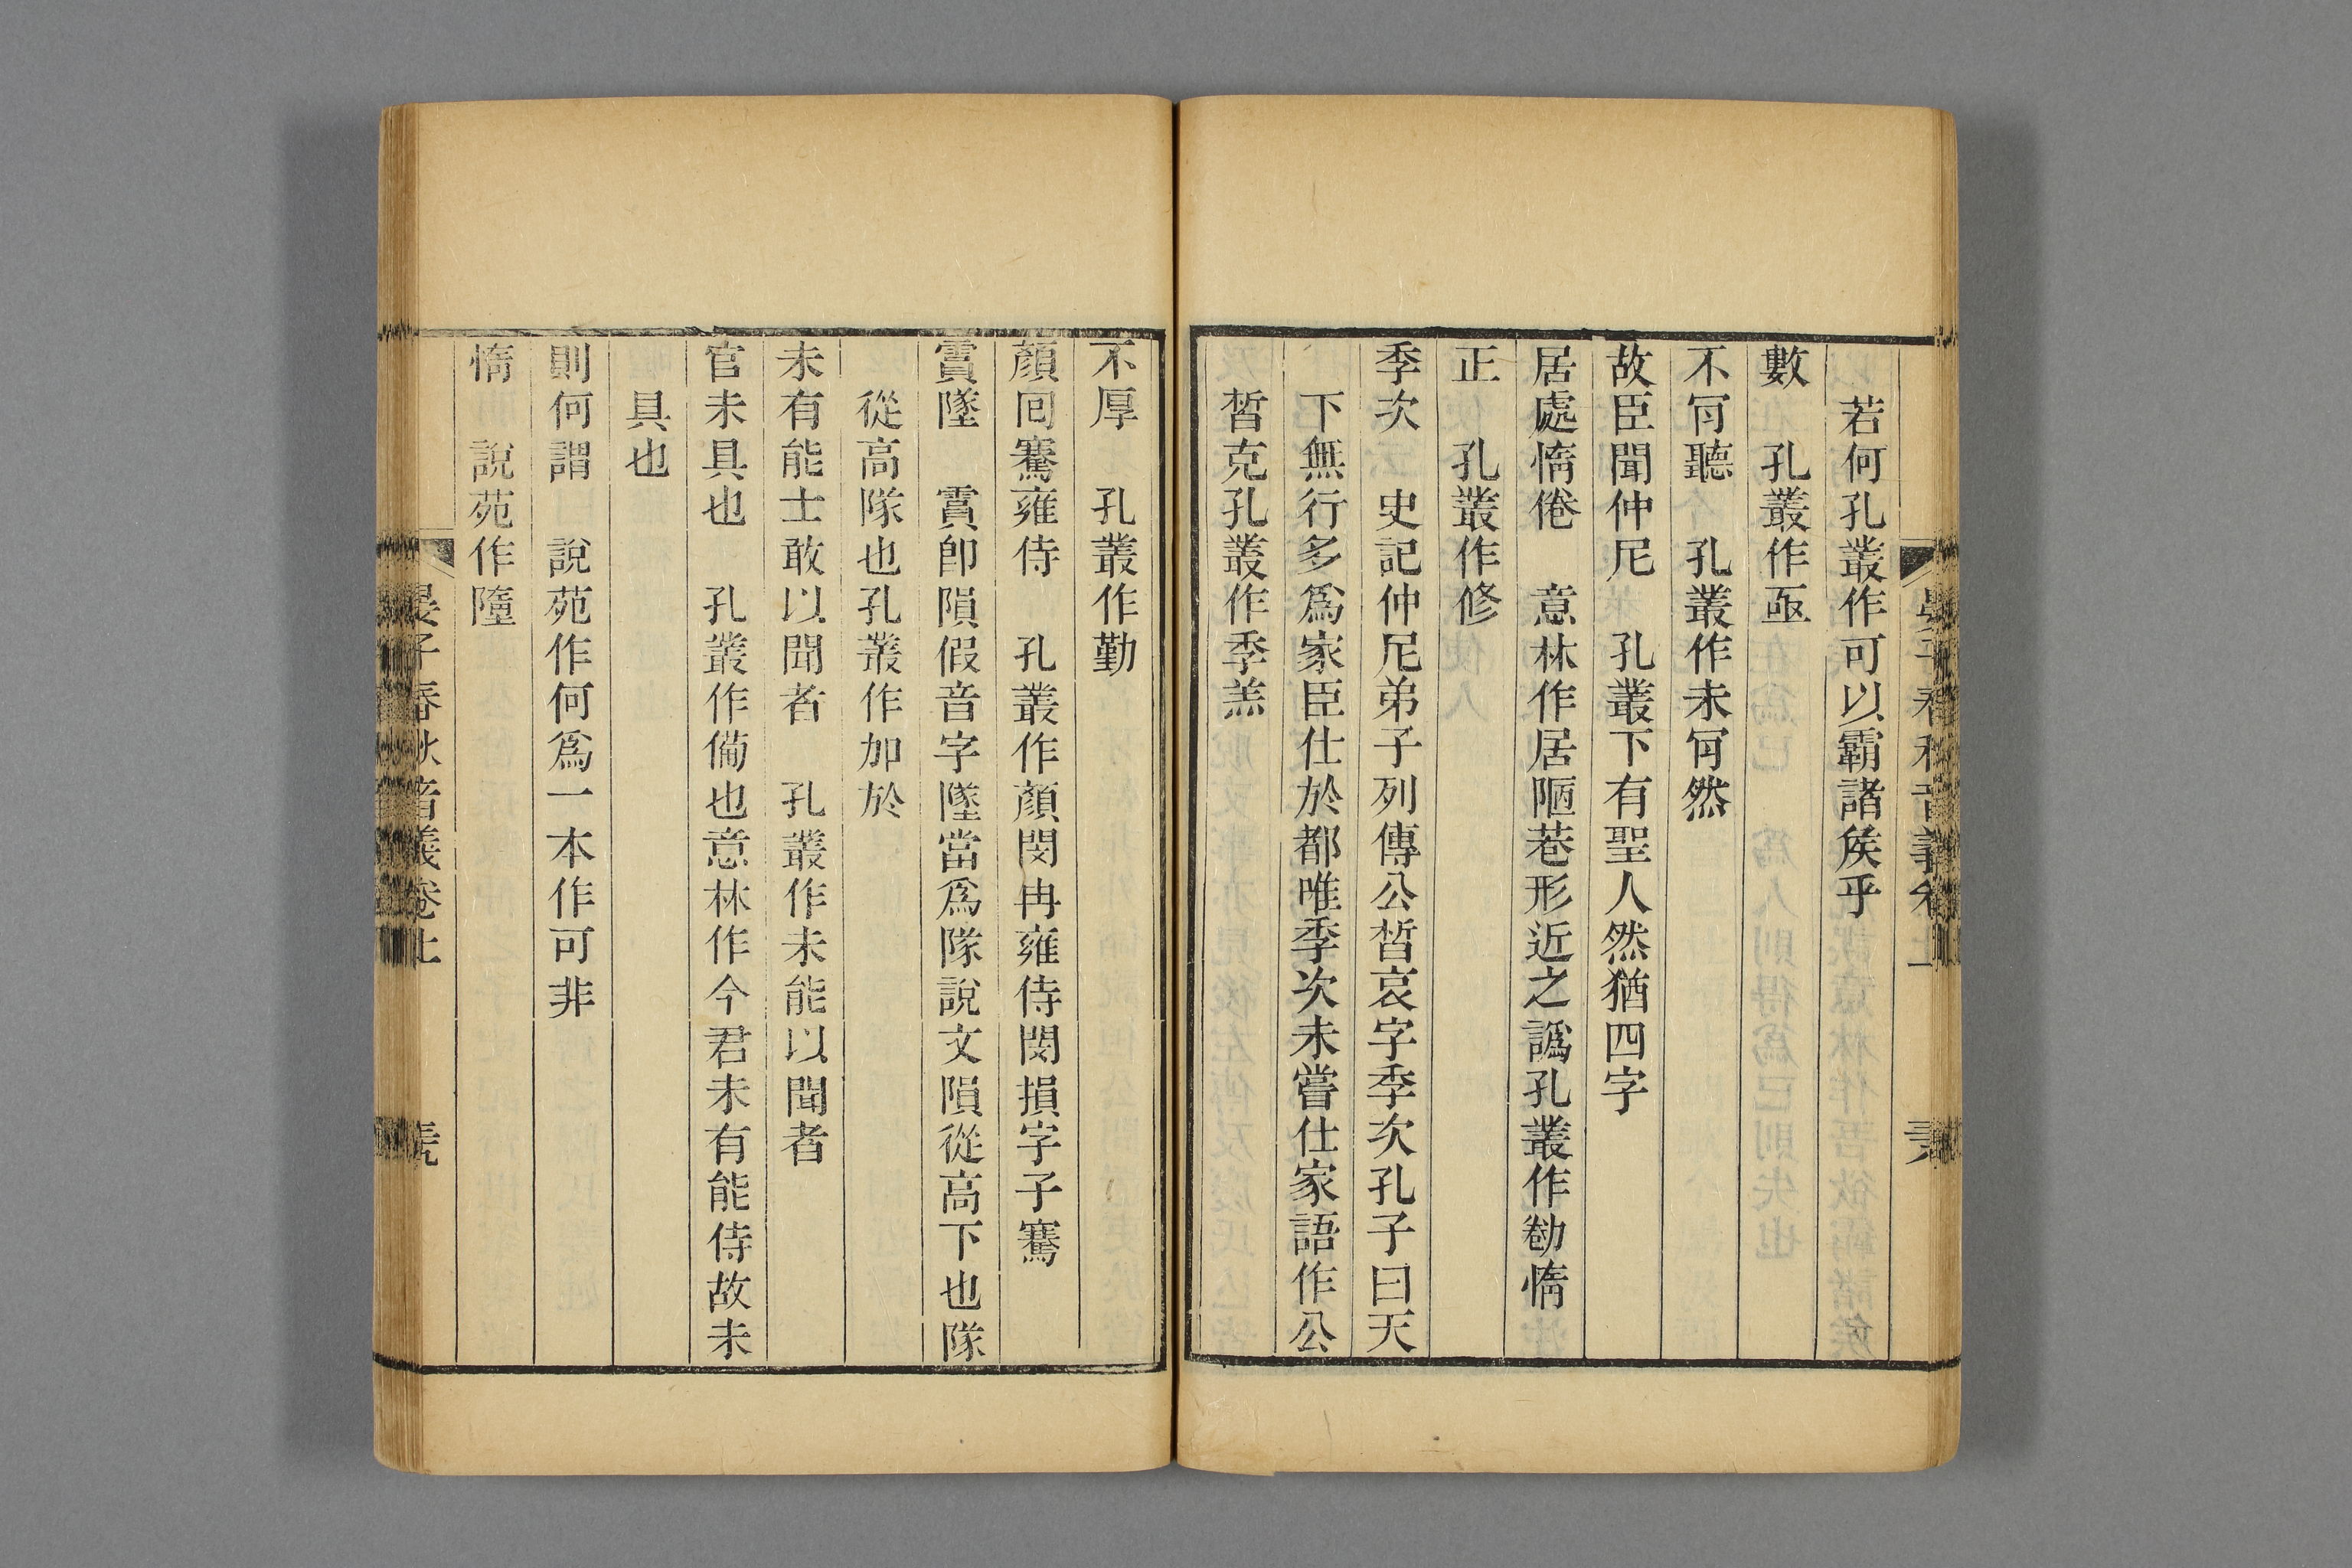 若何孔叢作可以霸諸矦乎
數　孔叢作亟
不肎聽　孔叢作未肎然
故臣聞仲尼　孔叢下有聖人然猶四字
居處惰倦　意林作居陋巷形近之譌孔叢作勌惰
正　孔叢作修
季次　史記仲尼弟子列傳公晳哀字季次孔子曰天
下無行多爲家臣仕於都唯季次未嘗仕家語作公
晳克孔叢作季羔
不厚　孔叢作勤
顏回騫雍侍　孔叢作顏閔冉雍侍閔損字子騫
霣墜　霣卽隕假音字墜當爲隊說文隕從高下也隊
從高隊也孔叢作加於
未有能士敢以聞者　孔叢作未能以聞者
官未具也　孔叢作僃也意林作今君未有能侍故未
具也
則何謂　說苑作何爲一本作可非
惰　說苑作隳
晏子春秋音義卷上